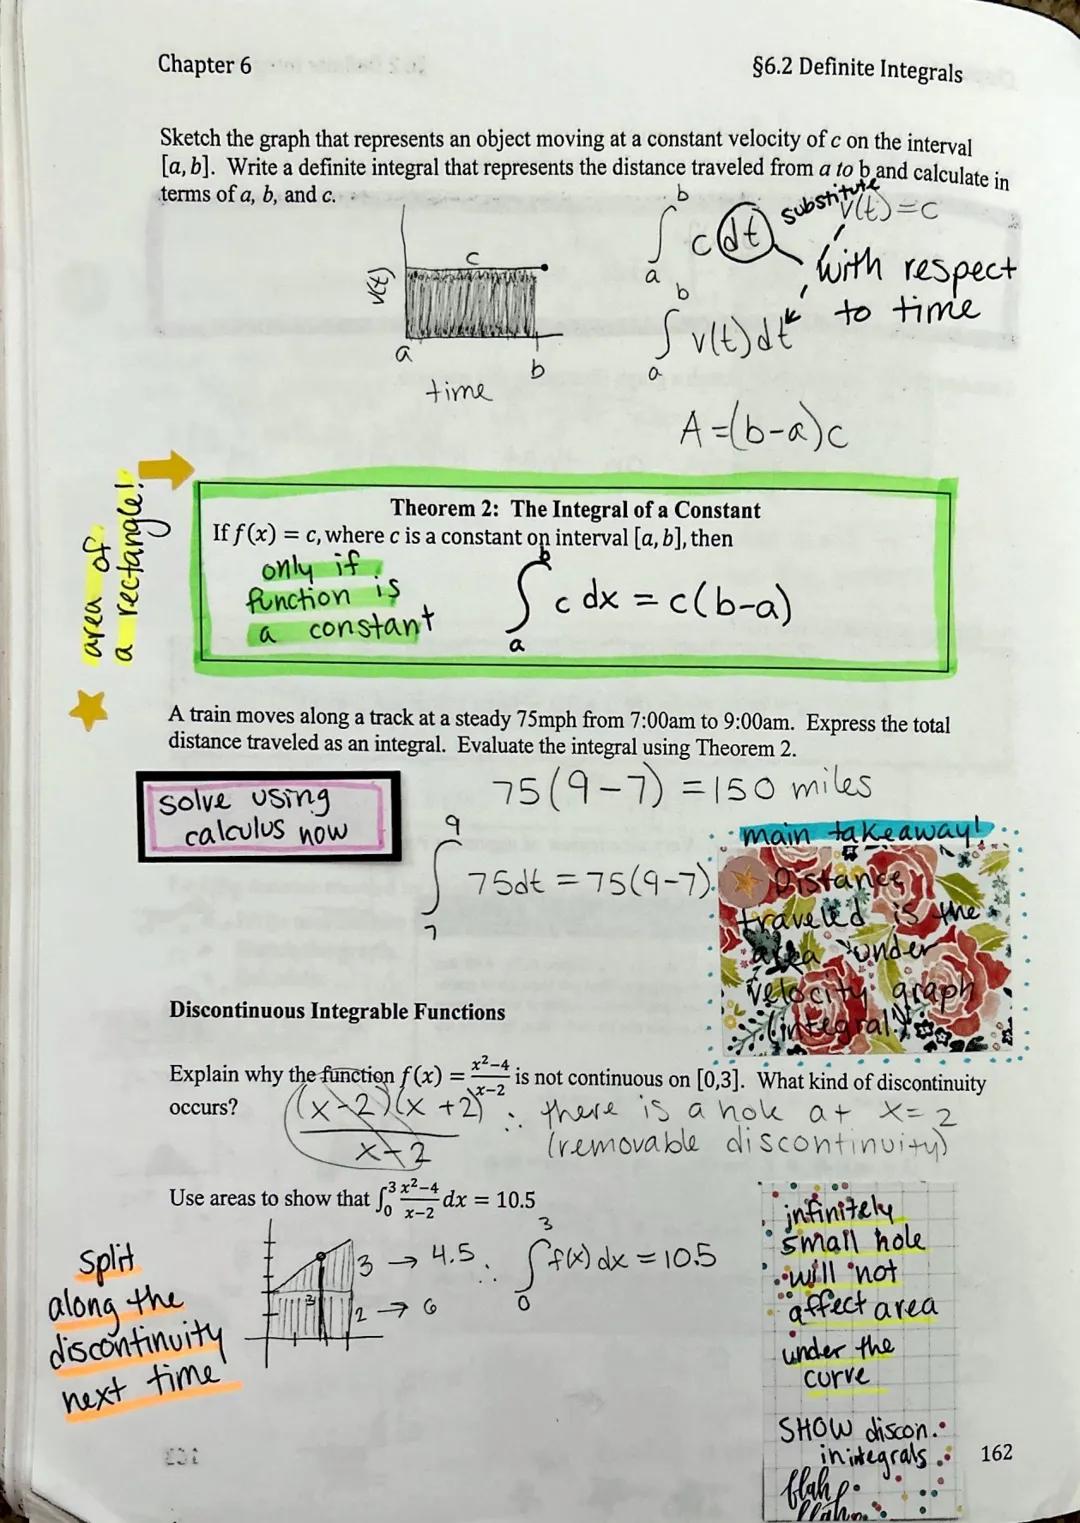 Chapter 6
§6.2 Definite Integrals
Sketch the graph that represents an object moving at a constant velocity of c on the interval
[a, b]. Write a definite integral that represents the distance traveled from a to b and calculate in
terms of a, b, and c.
∫ₐᵇ c dt
substitute
v(t)=c
with respect
to time
∫ₐᵇ v(t)dt
c
v(t)
a
b
time
A=(b-a)c
area of
a rectangle!
Theorem 2: The Integral of a Constant
If f(x) = c, where c is a constant on interval [a, b], then
only if
function is
a constant
∫ₐᵇ c dx = c(b-a)
A train moves along a track at a steady 75mph from 7:00am to 9:00am. Express the total
distance traveled as an integral. Evaluate the integral using Theorem 2.
solve using
calculus now
75(9-7) = 150 miles
∫₇⁹ 75dt = 75(9-7)
main takeaway!
Distance
traveled is the
area under
velocity graph
(integral)
Discontinuous Integrable Functions
Explain why the function f(x) = x²−4/x−2 is not continuous on [0,3]. What kind of discontinuity
occurs?
(x-2)(x+2)
x-2
∴ there is a hole at x=2
(removable discontinuity)
Use areas to show that ∫₀³ x²−4/x−2 dx = 10.5
split
along the
discontinuity
next time
3
3 → 4.5
2 → 6
∴ ∫₀³ f(x) dx = 10.5
infinitely
small hole
will not
affect area
under the
curve
SHOW discon.
in integrals
blah
162